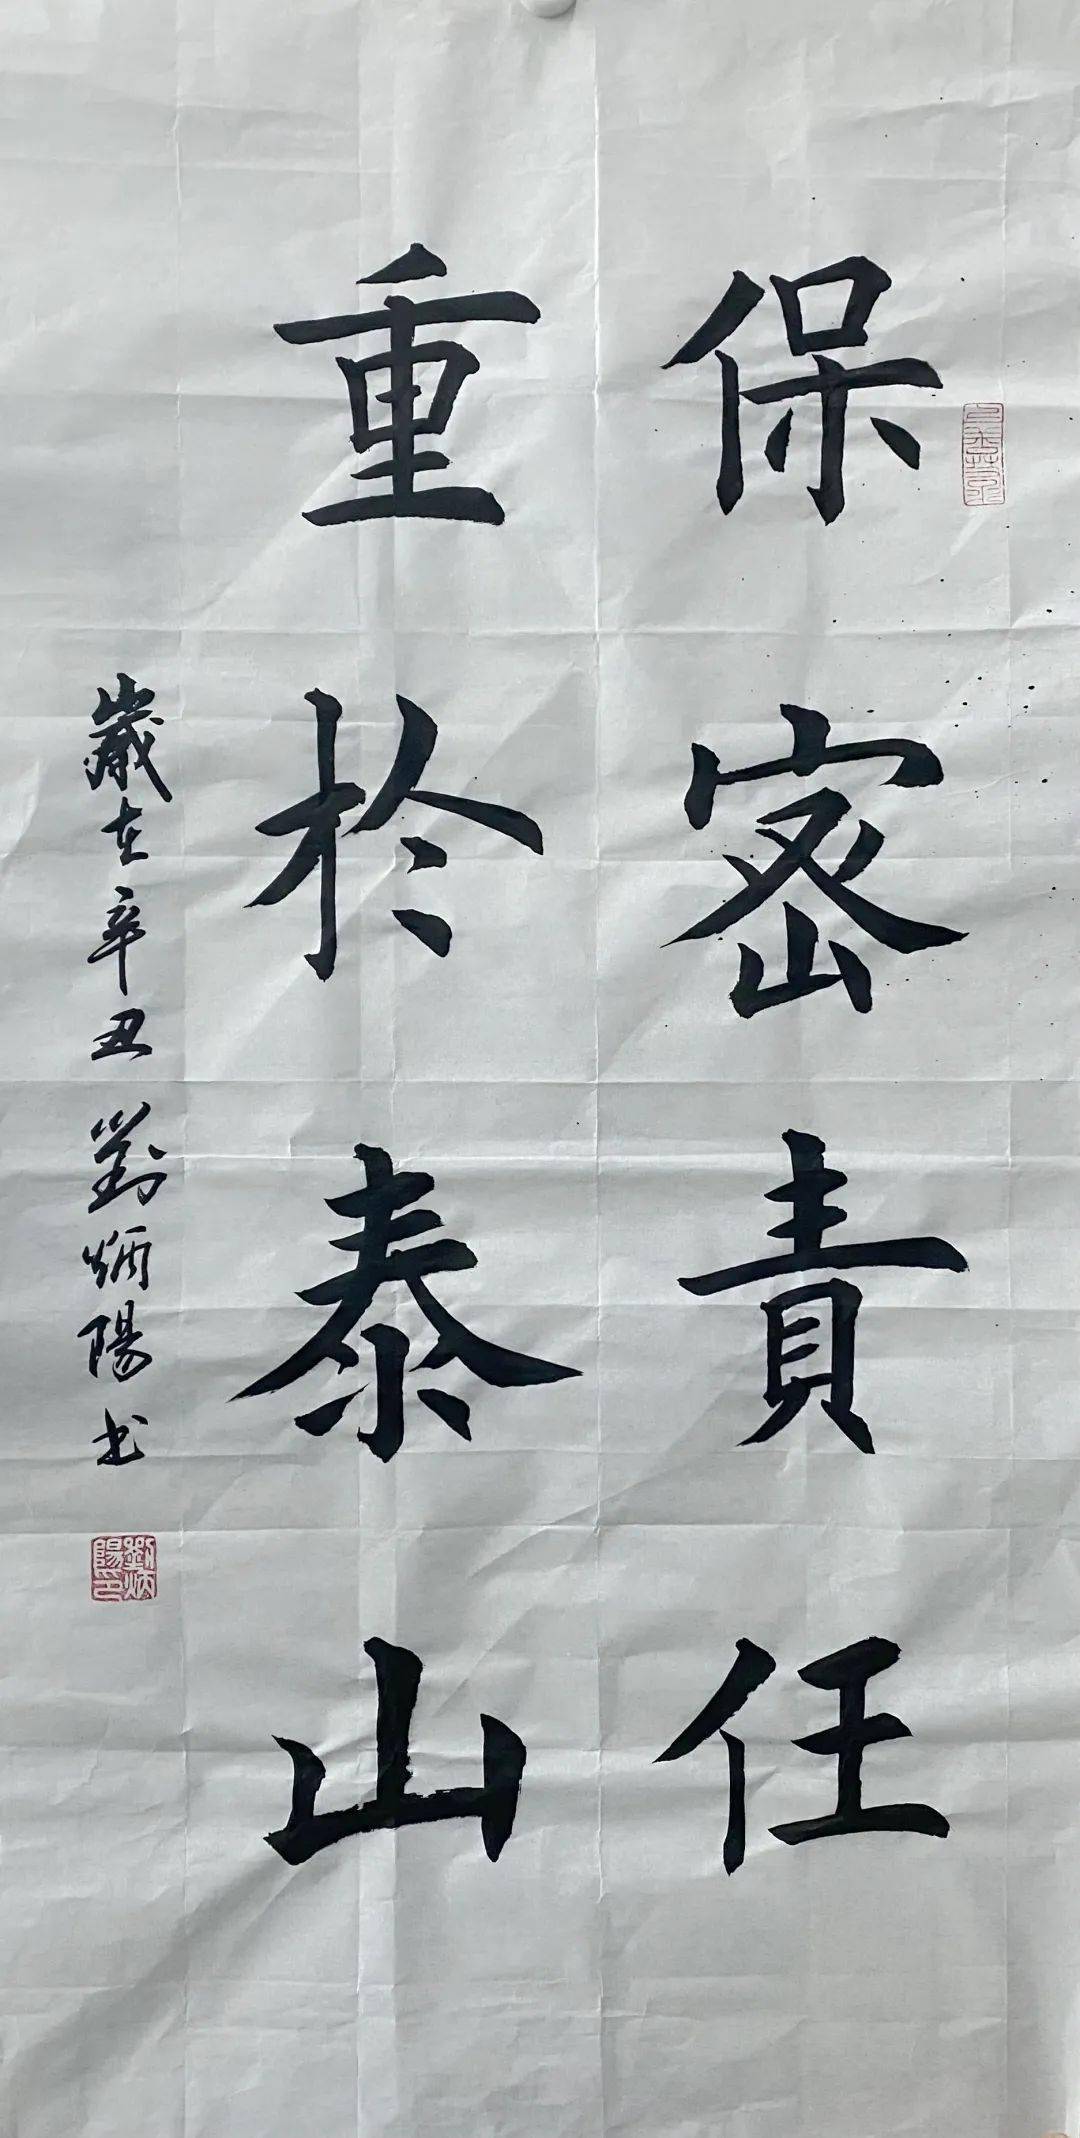 保密責任
重於泰山
歲在辛丑 劉炳陽书
劉炳陽印